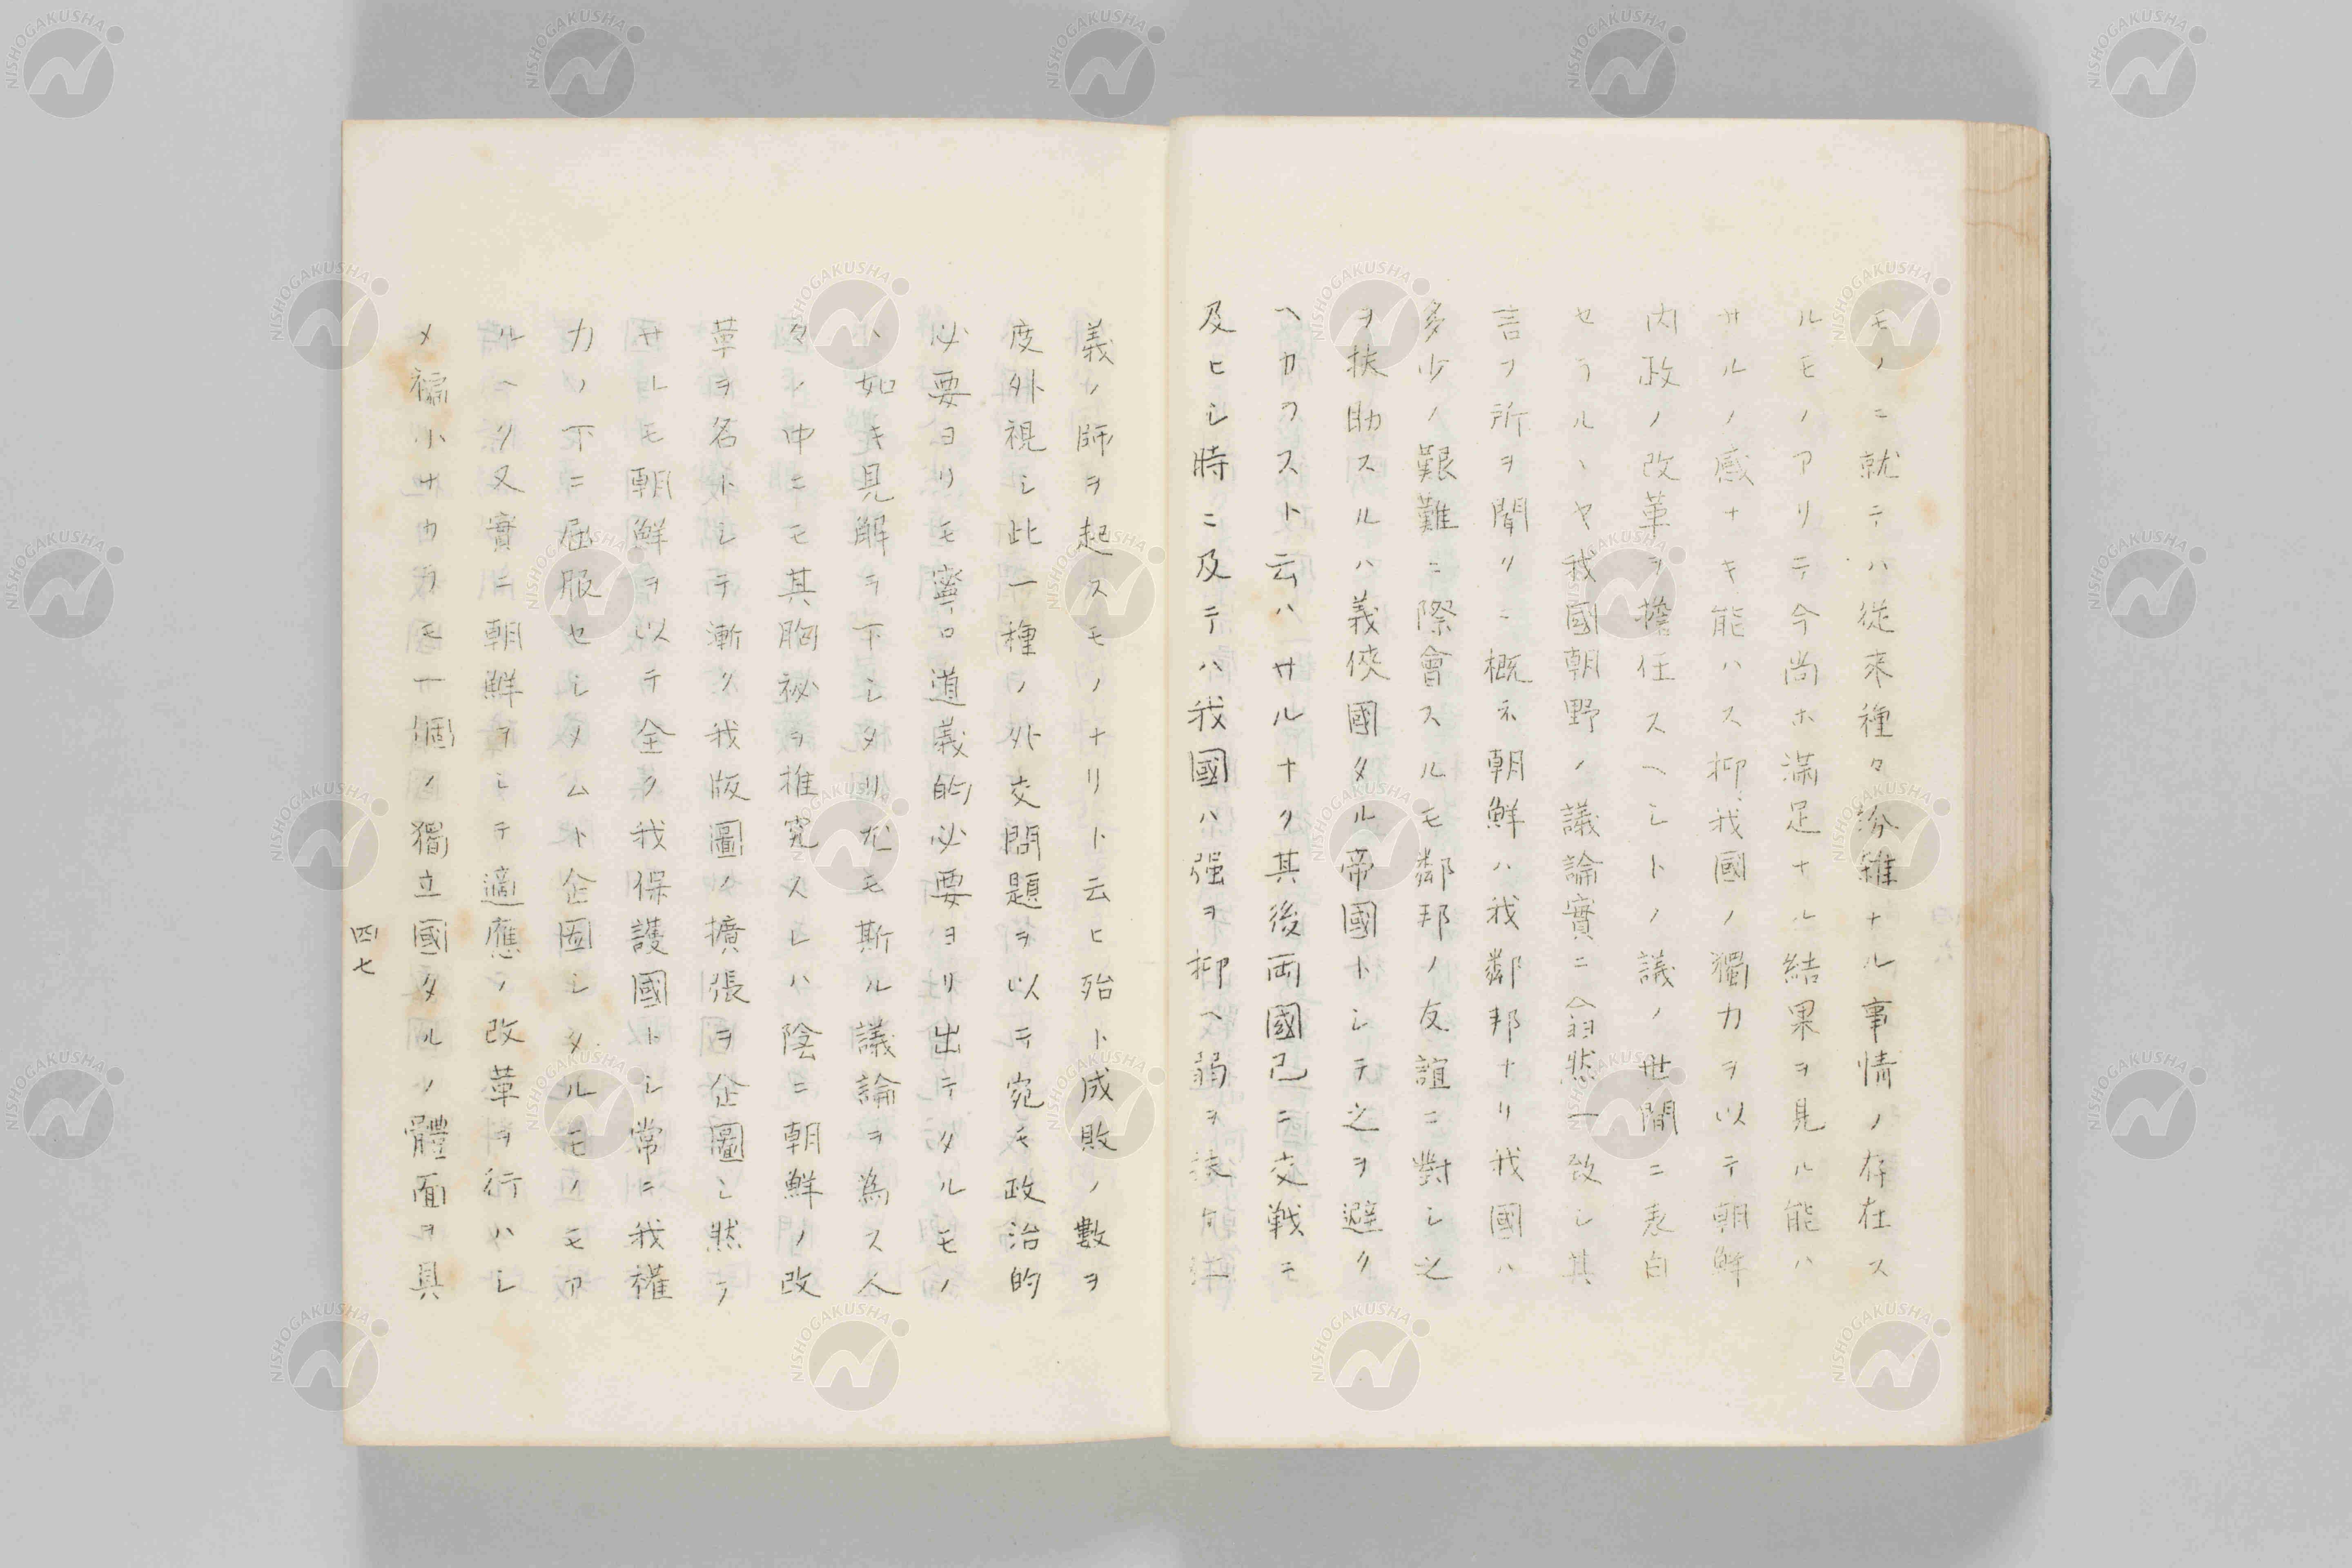 モノニ就テハ從來種々紛雜ナル事情ノ存在ス
ルモノアリテ今尚ホ滿足ナル結果ヲ見ル能ハ
サルノ感ナキ能ハス抑我國ノ獨力ヲ以テ朝鮮
内政ノ改革ヲ擔任スヘシトノ議ノ世間ニ表白
セラルヽヤ我國朝野ノ議論實ニ翕然一致シ其
言フ所ヲ聞クニ概ネ朝鮮ハ我鄰邦ナリ我國ハ
多少ノ艱難ニ際會スルモ鄰邦ノ友誼ニ對シ之
ヲ扶助スルハ義俠國タル帝國トシテ之ヲ避ク
ヘカラスト云ハサルナク其後両國已ニ交戰ニ
及ヒシ時ニ及テハ我國ハ强ヲ抑ヘ弱ヲ扶ケ仁
義ノ師ヲ起スモノナリト云ヒ殆ト成敗ノ數ヲ
度外視シ此一種ノ外交問題ヲ以テ宛モ政治的
必要ヨリモ寧ロ道義的必要ヨリ出テタルモノ
ト如キ見解ヲ下シタリ尤モ斯ル議論ヲ為ス人
々ノ中ニモ其胸祕ヲ推究スレハ陰ニ朝鮮ノ改
革ヲ名トシテ漸ク我版圖ノ擴張ヲ企圖シ然ラ
サルモ朝鮮ヲ以テ全ク我保護國トシ常ニ我權
力ノ下ニ屈服セシメムト企図シタルモノモア
ルヘク又實ニ朝鮮ヲシテ適應ノ改革ヲ行ハシ
メ褊小ナカラモ一個ノ獨立國タルノ體面ヲ具
四七
NISHOGAKUSHA